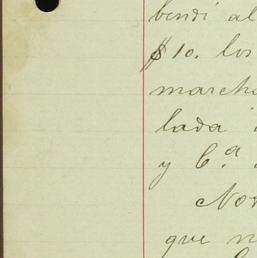 bendi al
$10. los
march
lada
y C.ª
Nov
que n